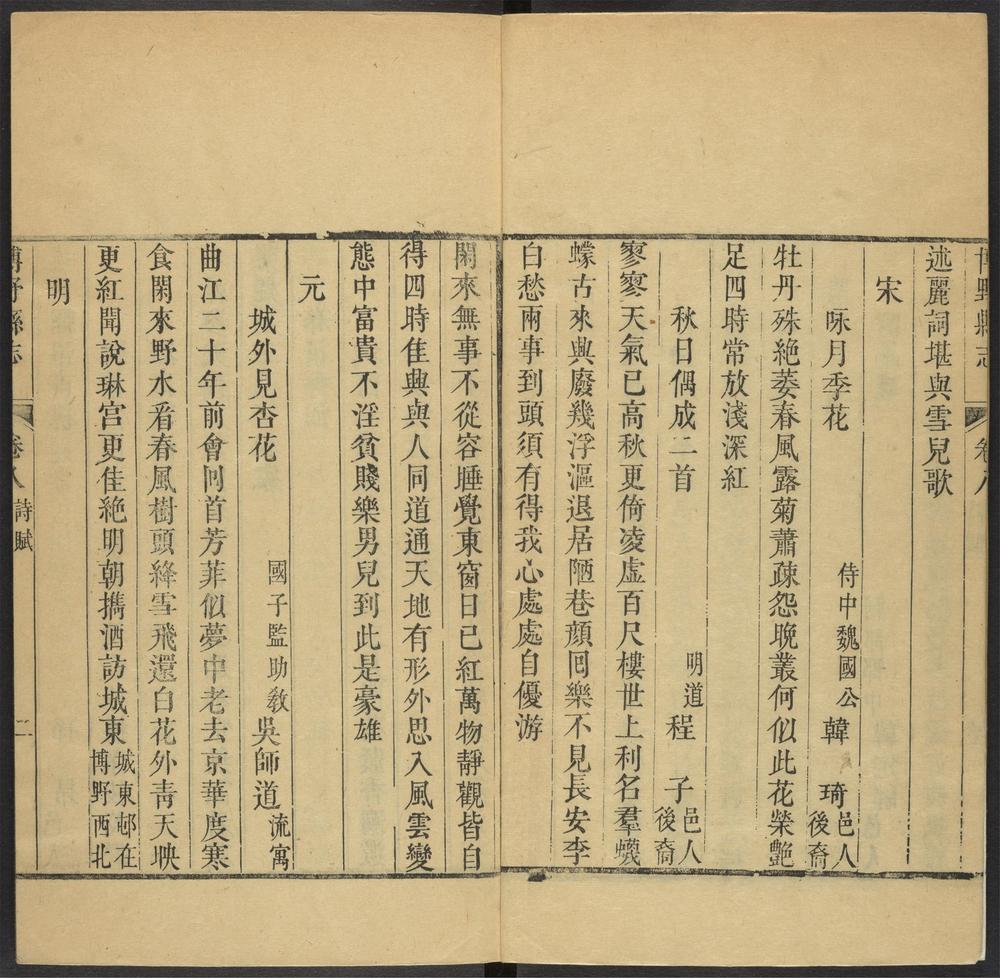 博野縣志 卷八
述麗詞堪與雪兒歌
宋
咏月季花 侍中魏國公韓琦邑人後裔
牡丹殊絶萎春風露菊蕭疎怨晚叢何似此花榮艷
足四時常放淺深紅
秋日偶成二首 明道程子邑人後裔
寥寥天氣已高秋更倚凌虚百尺樓世上利名羣蠛
蠓古來興廢幾浮漚退居陋巷顔囘樂不見長安李
白愁兩事到頭須有得我心處處自優游
閑來無事不從容睡覺東窗日已紅萬物靜觀皆自
得四時佳興與人同道通天地有形外思入風雲變
態中富貴不淫貧賤樂男兒到此是豪雄
元
城外見杏花 國子監助教吳師道流寓
曲江二十年前會囘首芳菲似夢中老去京華度寒
食閑來野水看春風樹頭絳雪飛還白花外青天映
更紅聞說琳宫更佳絶明朝携酒訪城東城東邨在博野西北
明
博野縣志 卷八 詩賦 二